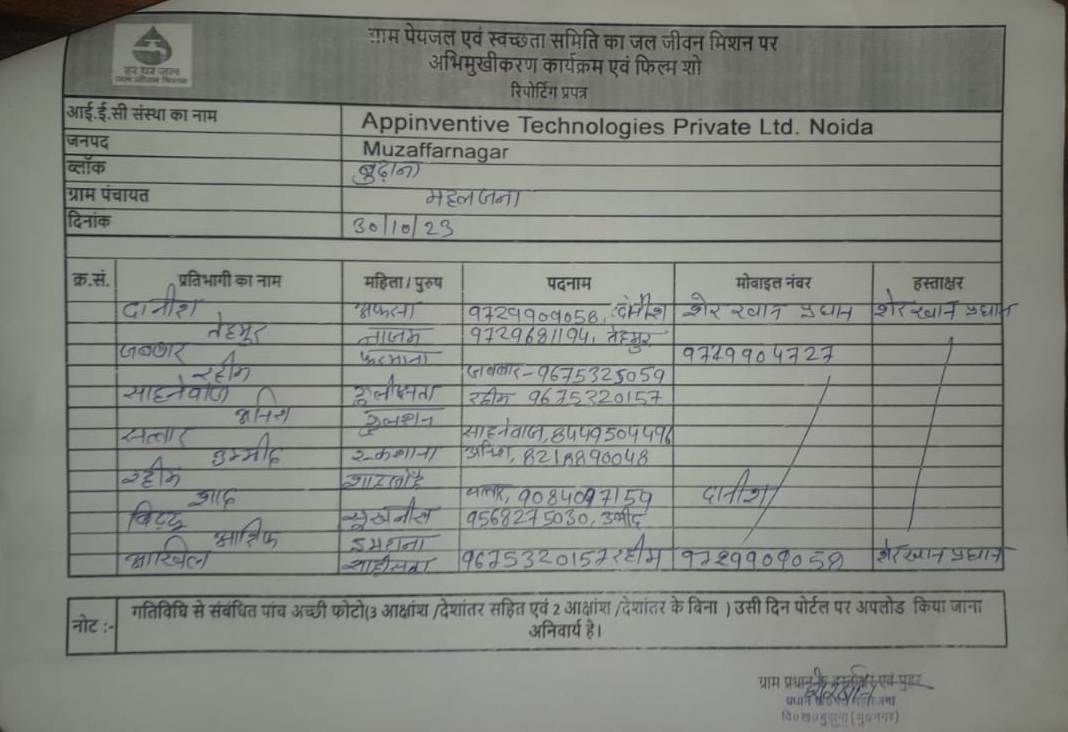 हर घर जल
जल जीवन मिशन
ग्राम पेयजल एवं स्वच्छता समिति का जल जीवन मिशन पर
अभिमुखीकरण कार्यक्रम एवं फिल्म शो
रिपोर्टिंग प्रपत्र
आई.ई.सी संस्था का नाम Appinventive Technologies Private Ltd. Noida
जनपद Muzaffarnagar
ब्लॉक बुढ़ाना
ग्राम पंचायत महलजना
दिनांक 30/10/23
क्र.सं. प्रतिभागी का नाम महिला / पुरुष पदनाम मोवाइल नंवर हस्ताक्षर
दानीश अफसा 9729909058, दानीश शेर खान प्रधान शेर खान प्रधान
तेहमुर नाजम 9729681194, तेहमुर
जब्बार फरमाना 9729904727
रहीम जब्बार-9675325059
साहनेवाज गुलफिसता रहीम 9675320157
अनिश गुलशन
सत्तार साहनेवाज, 8449504496
उम्मीद रुकशाना 8218890048
रहीम
शाद सत्तार, 9084097159 दानीश
बिट्टू 9568275030, उम्मीद
आशिक इमराना
आखिल 9675320157 रहीम 9729909058 शेर खान प्रधान
नोट :- गतिविधि से संबंधित पांच अच्छी फोटो(3 आक्षांश /देशांतर सहित एवं 2 आक्षांश /देशांतर के विना ) उसी दिन पोर्टल पर अपलोड किया जाना
अनिवार्य है।
ग्राम प्रधान के हस्ताक्षर एवं मुहर
प्रधान